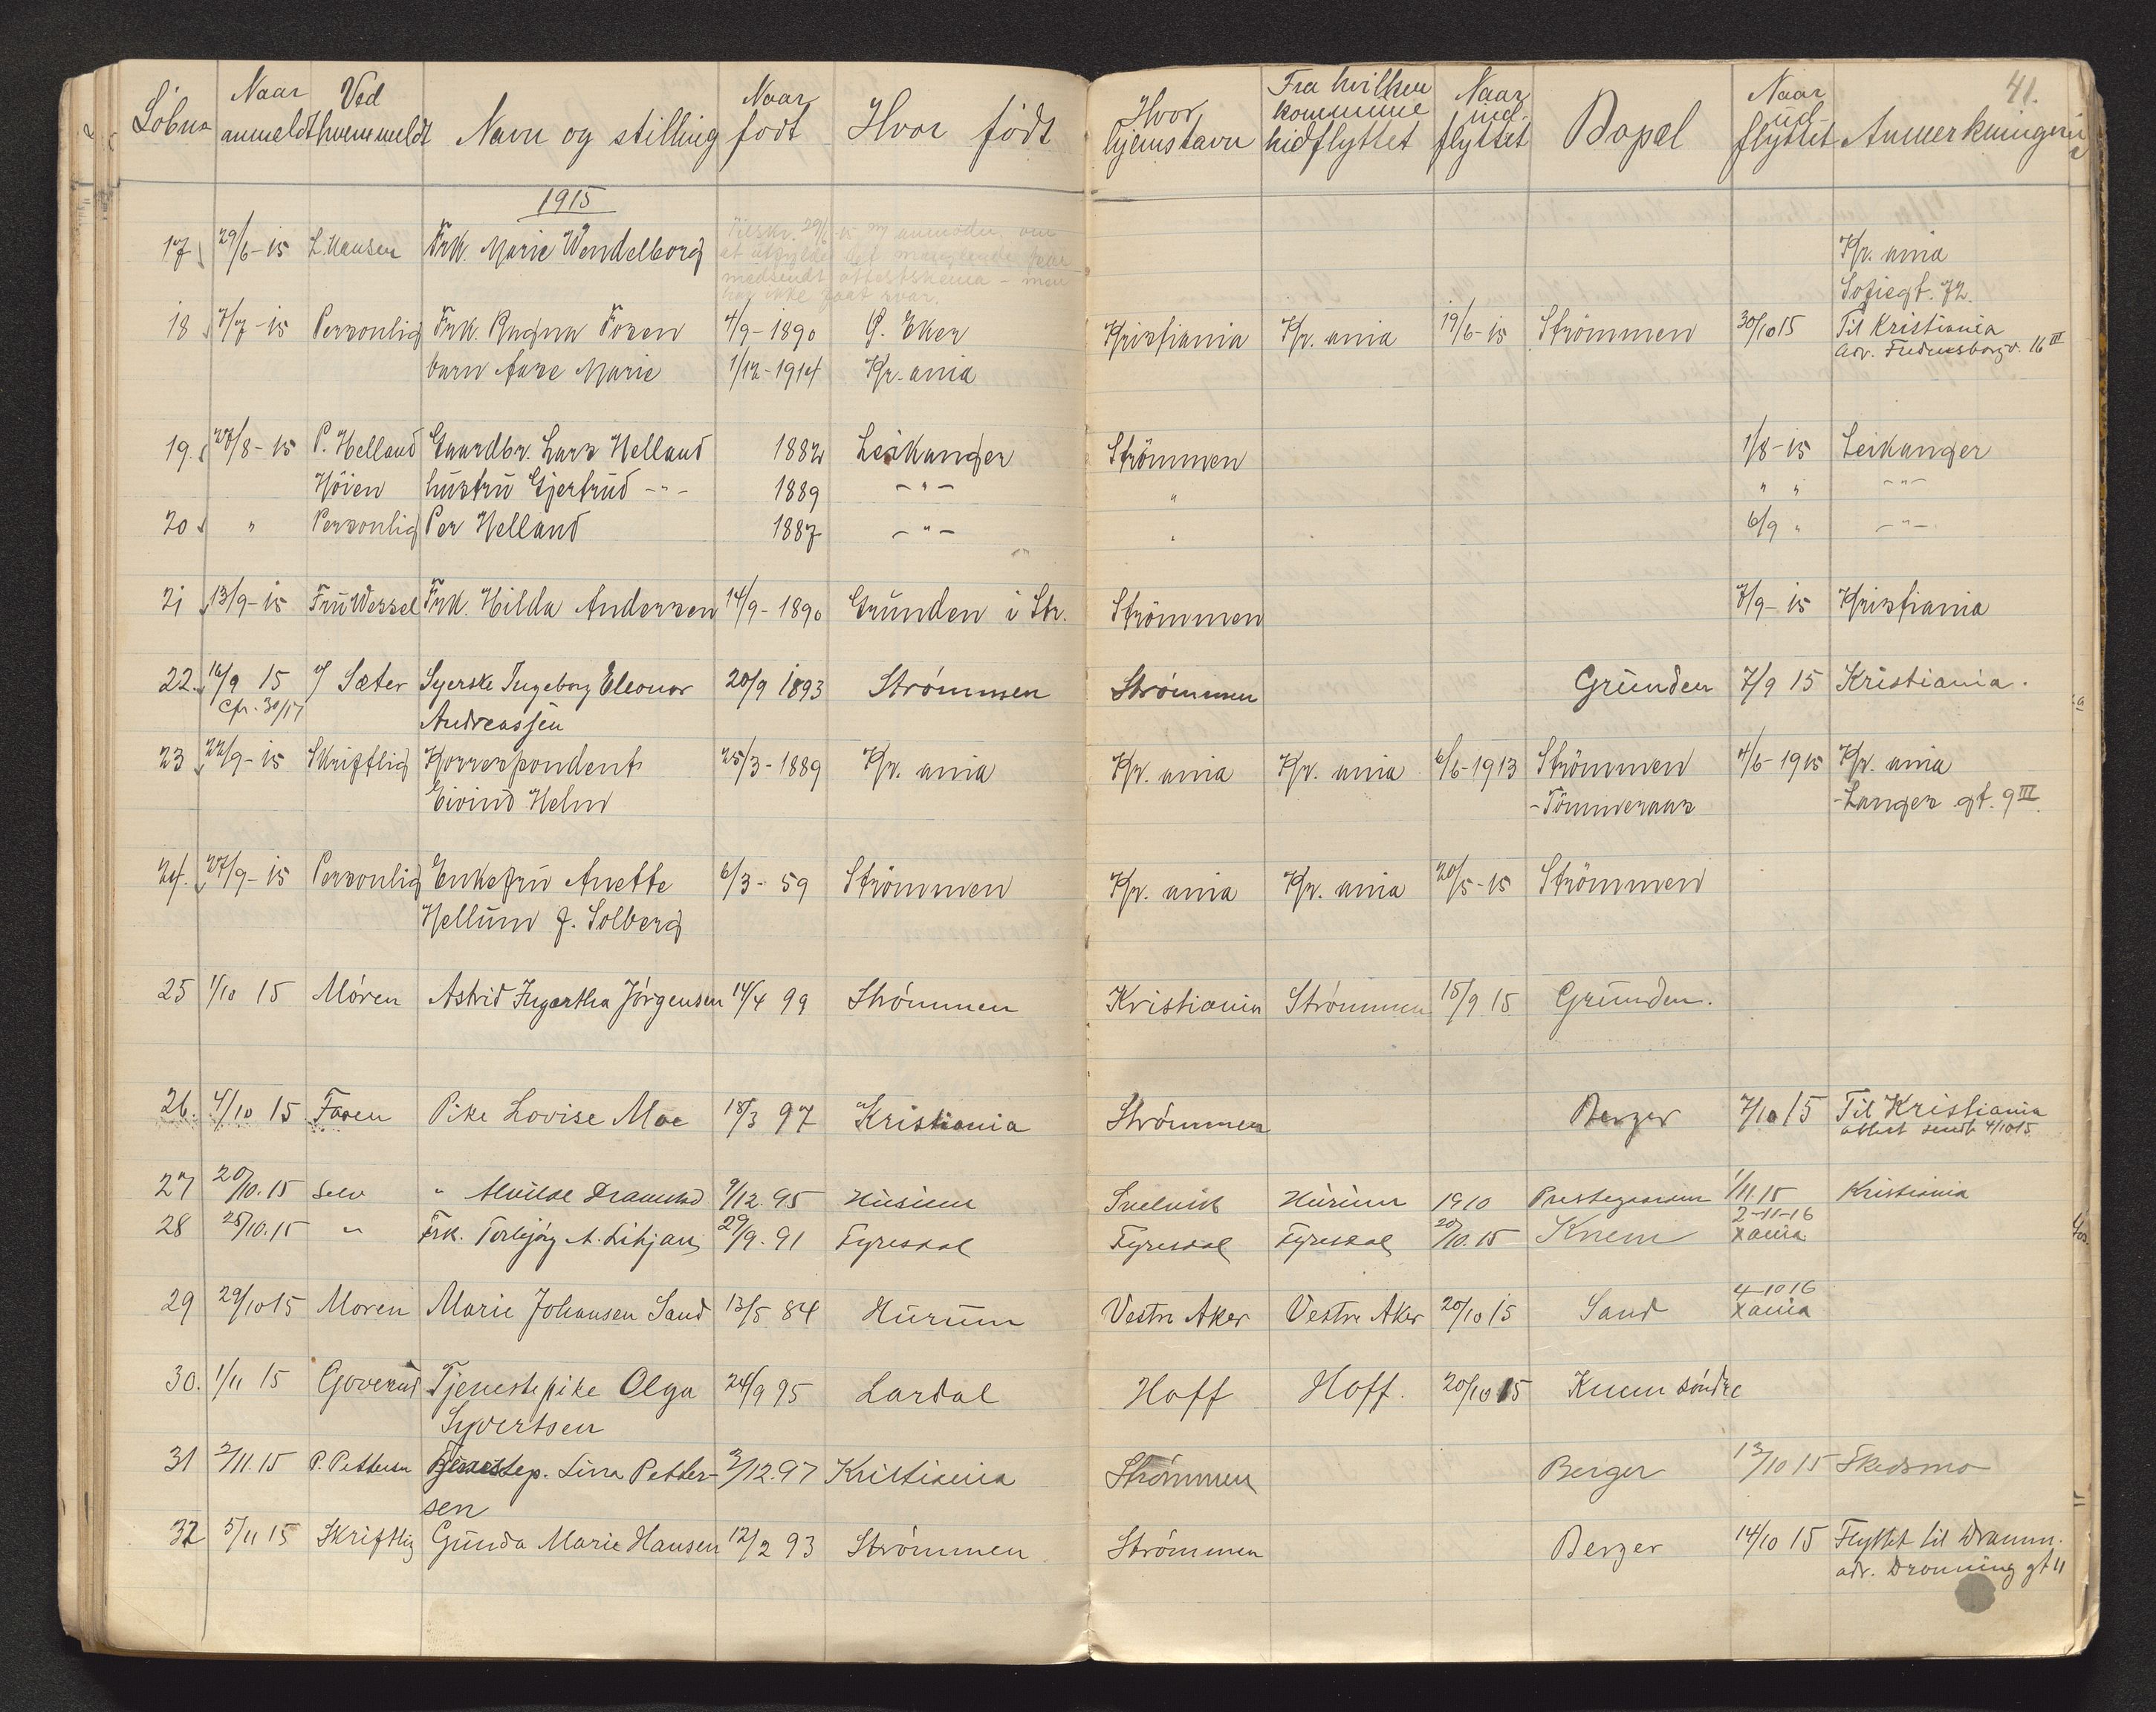 41.
Löbno Naar anmeldt Ved hvem meldt Navn og stilling Naar født Hvor født Hvor hjemstavn Fra hvilken kommune hidflyttet Naar ind-flyttet Bopæl Naar ud-flyttet Anmerkninger
1915
17 29/6-15 L. Hansen Frk. Marie Wendelborg Kr. ania
Tilskr. 29/6-15 om
at utfylde det manglende
medsendt attestskema - men
har ikke faat svar.
Sofiegt. 72.
18 7/7-15 Personlig Frk. Ragna Fossen 4/9-1890 Ø. Eker Kristiania Kr. ania 19/6-15 Strömmen 30/10 15 Til Kristiania
adr. Fredensborgv. 16 III
barn Aase Marie 1/12-1914 Kr. ania
19. 27/8-15 P. Helland Gaardbr. Lars Helland 1882 Leikanger Strömmen 1/8-15 Leikanger
Höien hustru Gjertrud -"- 1889 -"- " " " -"-
20 " Personlig Per Helland 1887 -"- " 6/9 " -"-
21 13/9-15 Fru Wessel Frk. Hilda Andersen 14/9-1890 Grunden i Str. Strömmen 7/9-15 Kristiania
22. 16/9 15 Sæter Syerske Ingeborg Eleonor 20/9 1893 Strömmen Strömmen Grunden 7/9 15 Kristiania.
cfr. 30/17 Andreassen
23 22/9-15 Skriftlig Korrespondent 25/3-1889 Kr. ania Kr. ania Kr. ania 6/6-1913 Strömmen 4/6-1915 Kr. ania
Eivind Helm -Tömmeraas -Langes gt. 9 III
24. 27/9-15 Personlig Enkefru Anette 6/3-59 Strömmen Kr. ania Kr. ania 20/5-15 Strömmen
Hellum f. Solberg
25 1/10 15 Moren Astrid Ingertha Jörgensen 14/4 99 Strömmen Kristiania Strömmen 15/9 15 Grunden.
26. 4/10 15 Faren Pike Lovise Moe 18/3 97 Kristiania Strömmen Berger 7/10 15 Til Kristiania
attest sendt 4/10 15
27 20/10.15 Selv " Alvilde Dramstad 9/12.95 Hurum Svelvik Hurum 1910 Prestegaarden 1/11.15 Kristiania
28 25/10.15 " Frk. Torbjörg A. 29/9.91 Fyresdal Fyresdal Fyresdal 20/10.15 Knem 2-11-16
Xania
29 29/10 15 Moren Marie Johansen Sand 13/5 84 Hurum Vestre Aker Vestre Aker 20/10 15 Sand 4-10 16
Xania
30. 1/11 15 Goverud Tjenestepike Olga 24/9 95 Lardal Hoff Hoff. 20/10 15 Knem söndre
Syvertsen
31 2/11.15 P. Pettersen Tjenestep. Lina Petter- 3/12.97 Kristiania Strömmen Berger 13/10 15 Skedsmo
sen
32 5/11 15 Skriftlig Gunda Marie Hansen 12/2 93 Strömmen Strömmen Berger 14/10 15 Flyttet til Dramm.
adr. Dronning gt 11